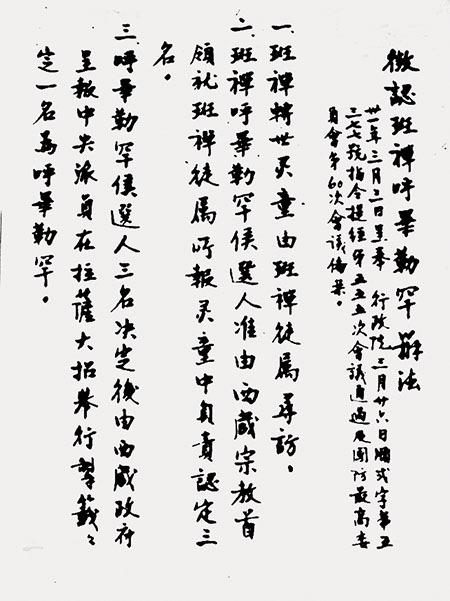 徵認班禪呼畢勒罕辦法
卅一年三月三日呈奉 行政院三月廿六日順弍字第五
三七七號指令提經第五五五次會議通過及國防最高委
員會第60次會議備案。
一、班禪轉世灵童由班禪徒属尋訪。
二、班禪呼畢勒罕候選人准由西藏宗教首
領就班禪徒属所報灵童中負責認定三
名。
三、呼畢勒罕候選人三名决定後由西藏政府
呈報中央派員在拉薩大招舉行掣籤々
定一名為呼畢勒罕。